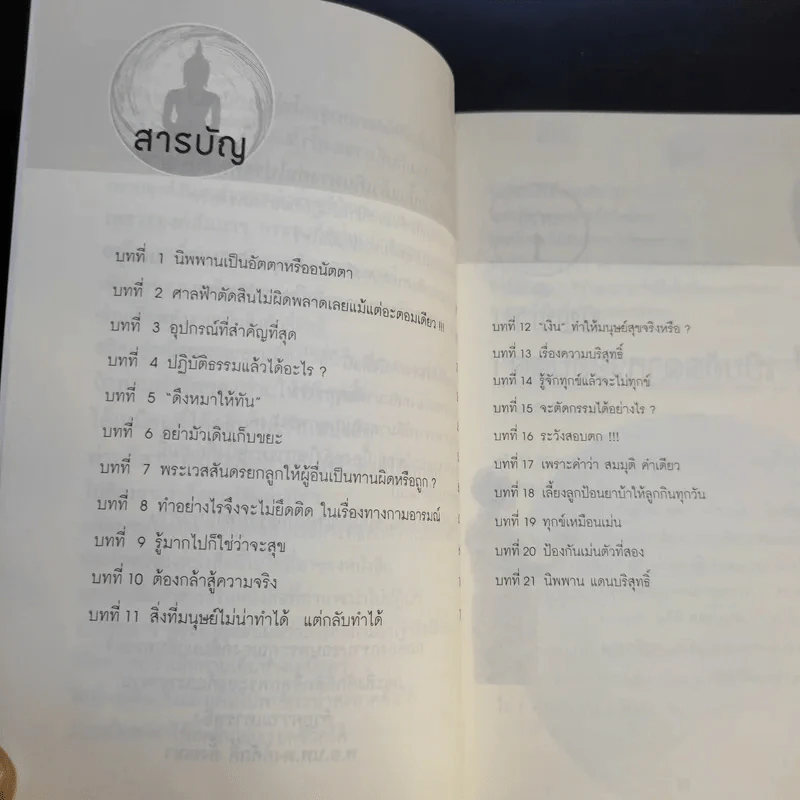 สารบัญ
บทที่ 1 นิพพานเป็นอัตตาหรืออนัตตา
บทที่ 2 ศาลฟ้าตัดสินไม่ผิดพลาดเลยแม้แต่อะตอมเดียว !!!
บทที่ 3 อุปกรณ์ที่สำคัญที่สุด
บทที่ 4 ปฏิบัติธรรมแล้วได้อะไร ?
บทที่ 5 “ดึงหมาให้ทัน”
บทที่ 6 อย่ามัวเดินเก็บขยะ
บทที่ 7 พระเวสสันดรยกลูกให้ผู้อื่นเป็นทานผิดหรือถูก ?
บทที่ 8 ทำอย่างไรจึงจะไม่ยึดติด ในเรื่องทางกามอารมณ์
บทที่ 9 รู้มากไปก็ใช่ว่าจะสุข
บทที่ 10 ต้องกล้าสู้ความจริง
บทที่ 11 สิ่งที่มนุษย์ไม่น่าทำได้ แต่กลับทำได้
บทที่ 12 “เงิน” ทำให้มนุษย์สุขจริงหรือ ?
บทที่ 13 เรื่องความบริสุทธิ์
บทที่ 14 รู้จักทุกข์แล้วจะไม่ทุกข์
บทที่ 15 จะตัดกรรมได้อย่างไร ?
บทที่ 16 ระวังสอบตก !!!
บทที่ 17 เพราะคำว่า สมมุติ คำเดียว
บทที่ 18 เลี้ยงลูกป้อนยาบ้าให้ลูกกินทุกวัน
บทที่ 19 ทุกข์เหมือนเม่น
บทที่ 20 ป้องกันเม่นตัวที่สอง
บทที่ 21 นิพพาน แดนบริสุทธิ์